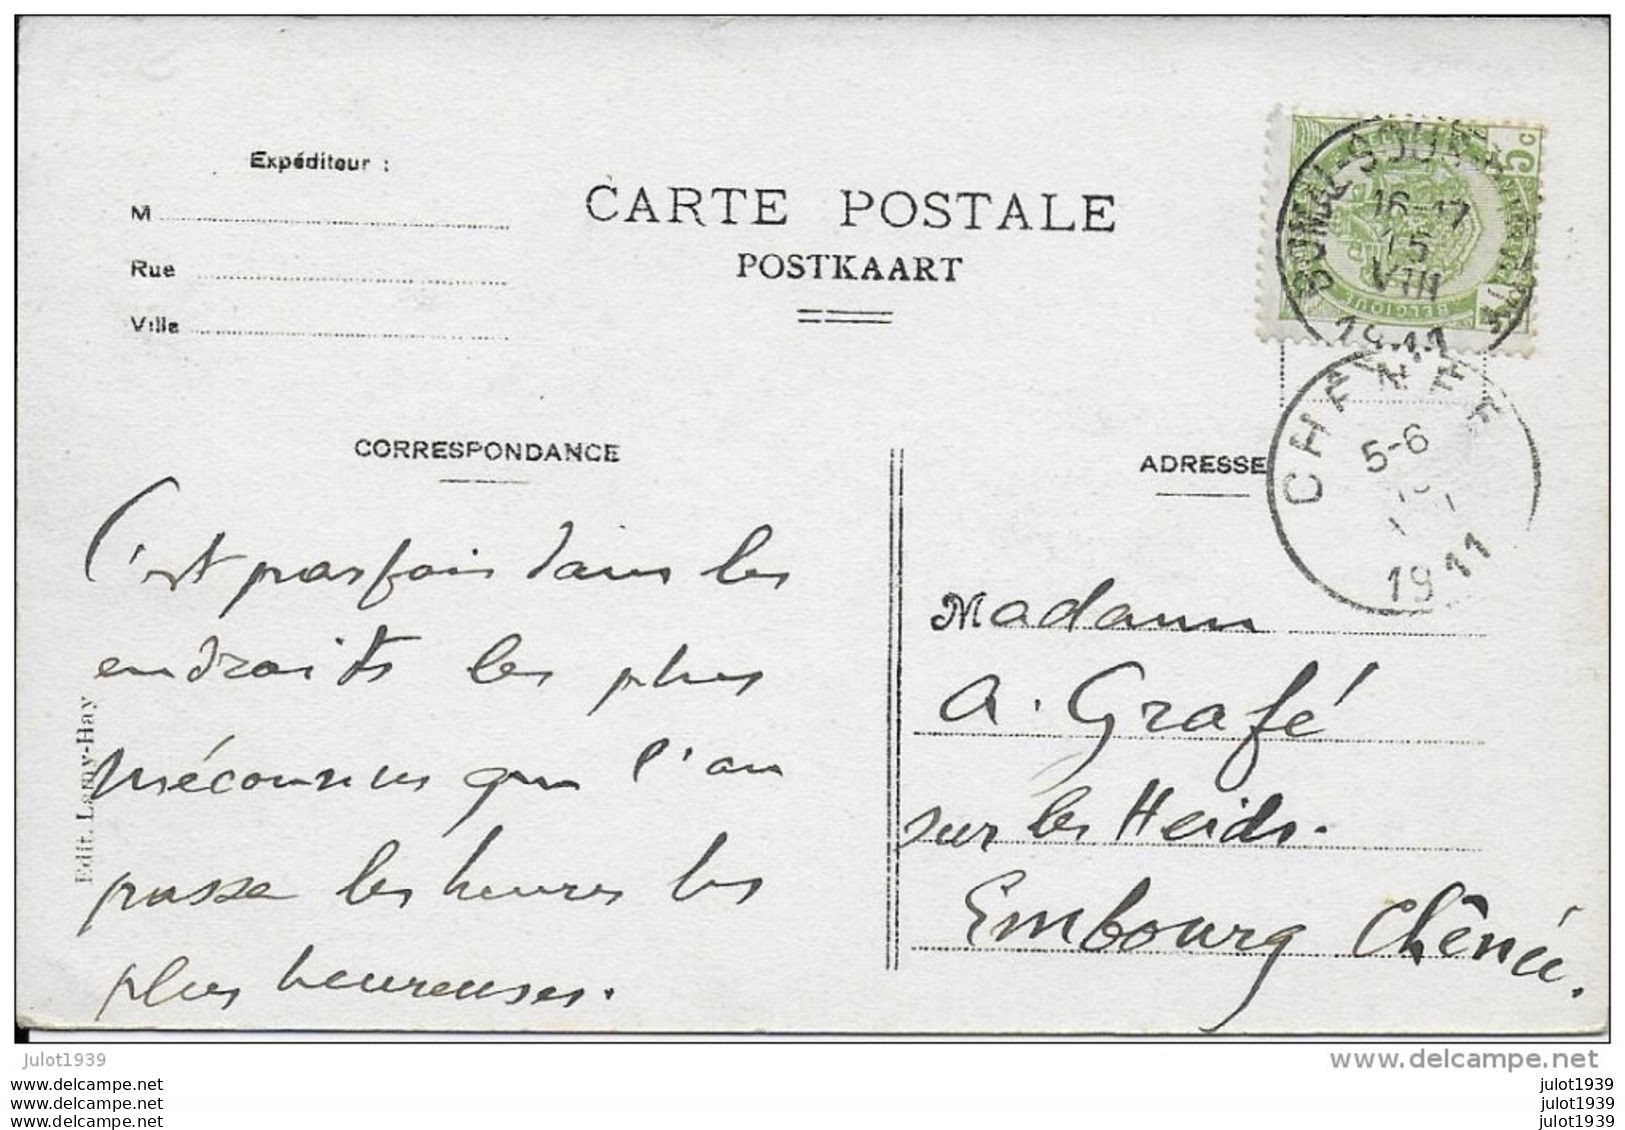 Expéditeur :
M
Rue
Ville
CARTE POSTALE
POSTKAART
16-17
15
VIII
1911
BELGIQUE
5c
CHENEE
5-6
1911
CORRESPONDANCE
ADRESSE
C'est parfois dans les
endroits les plus
méconnus que l'on
passe les heures les
plus heureuses.
Edit. Lamy-Hay
Madame
A. Grafé
sur les Heids.
Embourg Chênée.
julot1939
www.delcampe.net
www.delcampe.net
www.delcampe.net
www.delcampe.net
julot1939
julot1939
julot1939